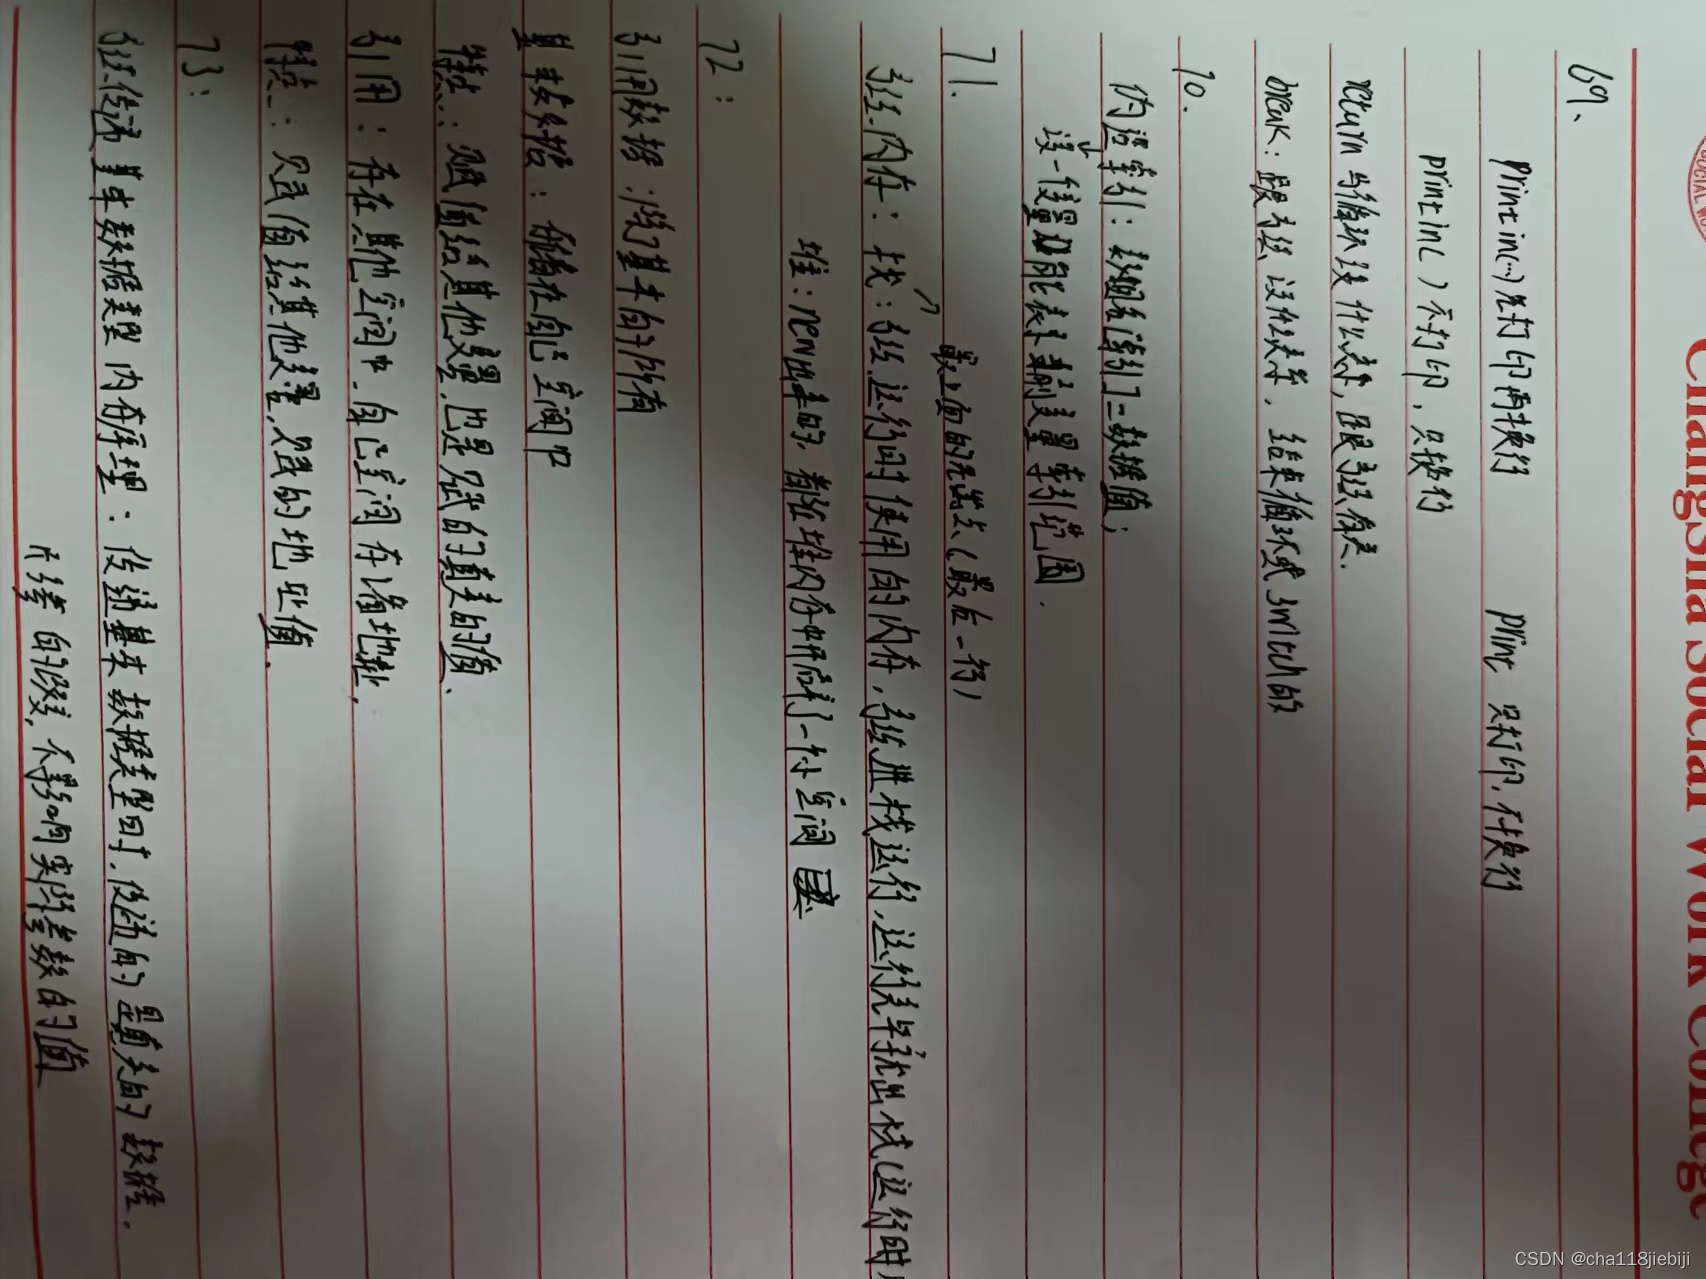 Changsha Social Work College
69、
println(…) 先打印再换行 print 只打印，不换行
println() 不打印，只换行
return 与循环没什么关系，跟方法有关.
break：跟方法没什么关系，结束循环或switch的
70.
伪造索引：表面索引了一数据值；
这一变量可能表示变量索引范围.
71.
最上面的先出去（最后一行）
方法内存：栈：方法运行时使用的内存，方法进栈运行，运行完毕就出栈（运行时
堆：new出来的，都在堆内存中开辟了一个小空间
72：
引用数据：除了基本的所有
基本数据：储存在自己空间中
特点：赋值给其他变量，也是赋的真实的值、
引用：存在其他空间中，自己空间存储地址，
特点：赋值给其他变量，赋的地址值.
73：
方法传递基本数据类型内存原理：传递基本数据类型时，传递的是真实的数据，
形参的改变，不影响实际参数的值
CSDN @cha118jiebiji